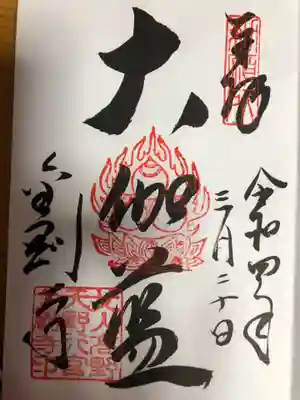 奉拝
令和四年
三月二十日
大伽藍
金剛寺